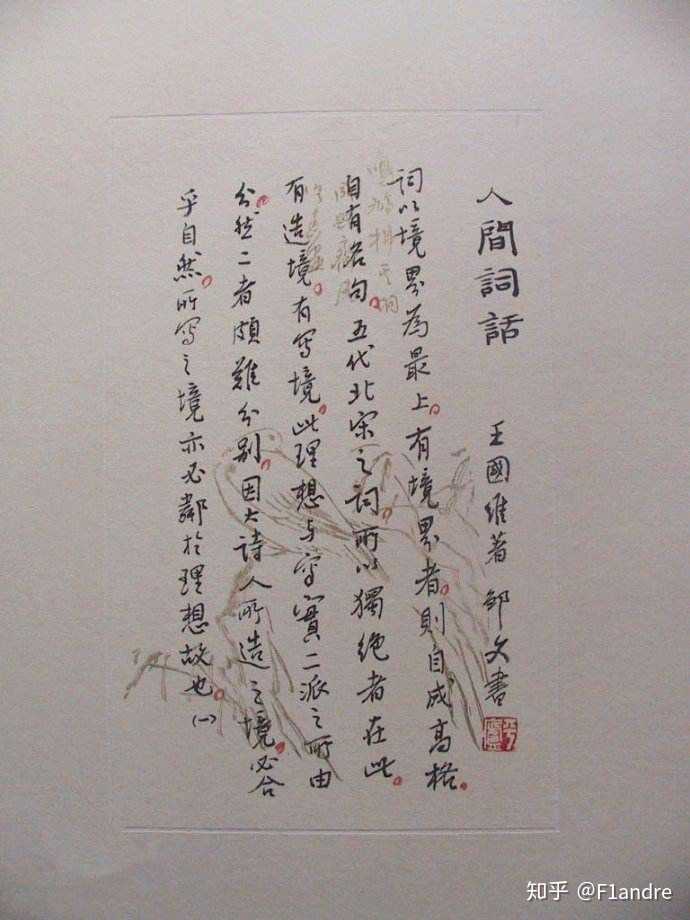 人間詞話 王國維著 邹文書
詞以境界為最上。有境界者。則自成高格。
自有名句。五代北宋之詞。所以獨絶者在此。
有造境。有写境。此理想与写實二派之所由
分。然二者頗難分别。因大詩人所造之境。必合
乎自然。所写之境亦必鄰於理想故也。(一)
知乎 @F1andre